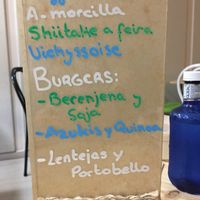 A. morcilla
Shiitake a feira
Vichyssoise
BURGERS:
- Berenjena y
Soja
- Azukis y Quinoa
- Lentejas y
Portobello